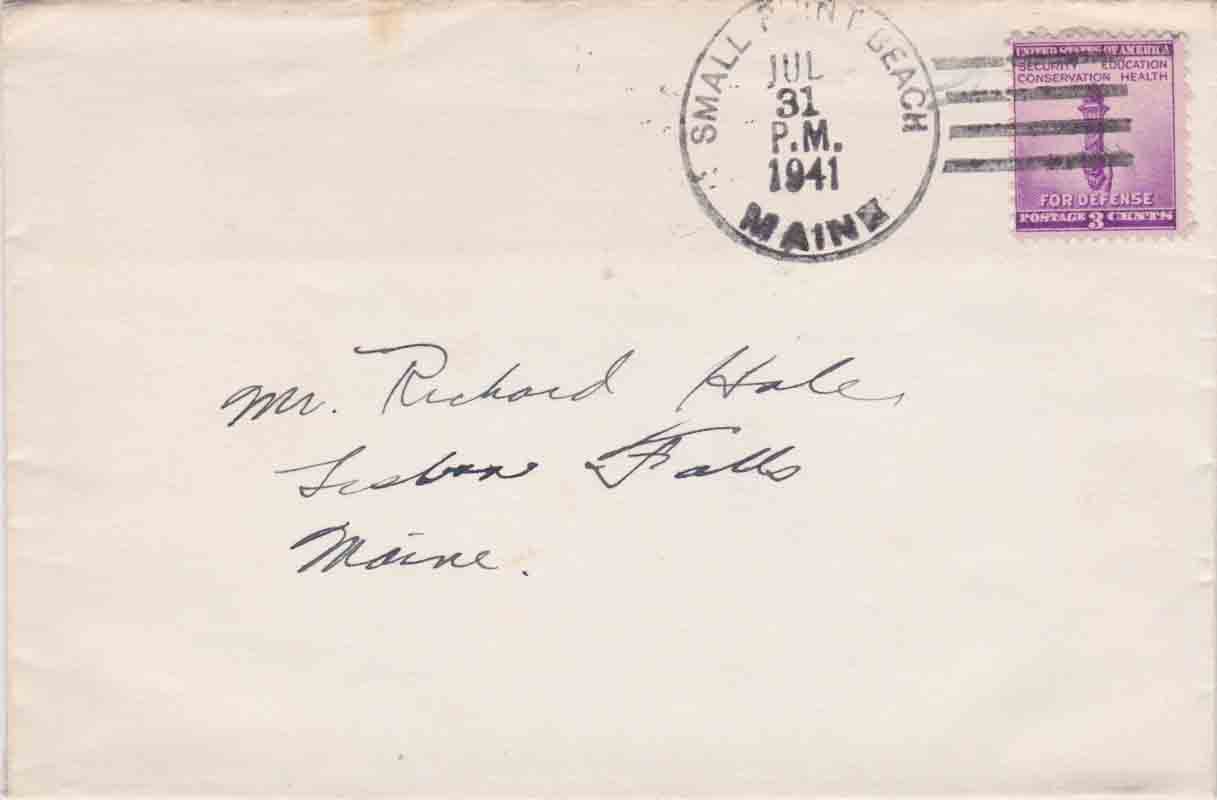 SMALL POINT BEACH
JUL
31
P.M.
1941
MAINE
UNITED STATES OF AMERICA
SECURITY EDUCATION
CONSERVATION HEALTH
FOR DEFENSE
POSTAGE 3 CENTS
Mr. Richard Hale,
Lisbon Falls
Maine.